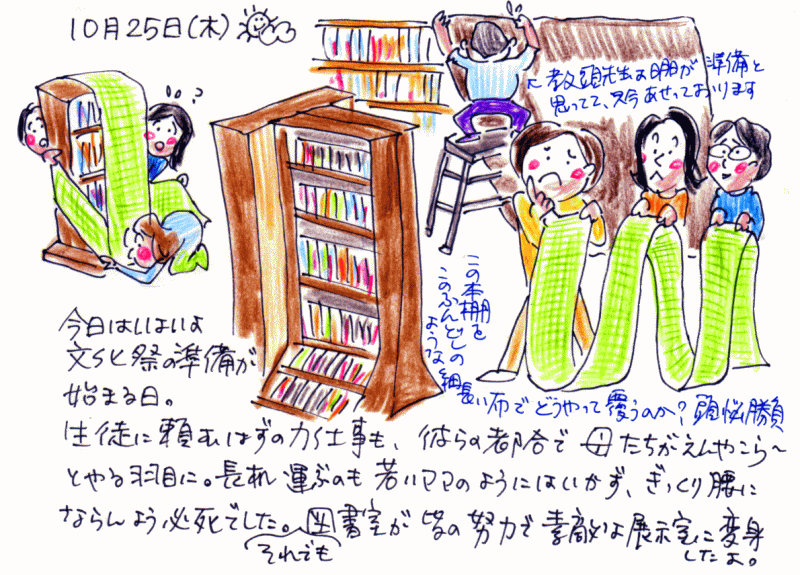 10月25日(木)
←教頭先生は明日が準備と
思ってて、只今あせっております
この本棚を
このふんどしの
ような細長い布でどうやって覆うのか?頭脳勝負
今日はいよいよ
文化祭の準備が
始まる日。
生徒に頼むはずの力仕事も、彼らの都合で母たちがえんやこら〜
とやる羽目に。長机運ぶのも若いママのようにはいかず、ぎっくり腰に
ならんよう必死でした。それでも図書室が皆の努力で素敵な展示室に変身
したよ。